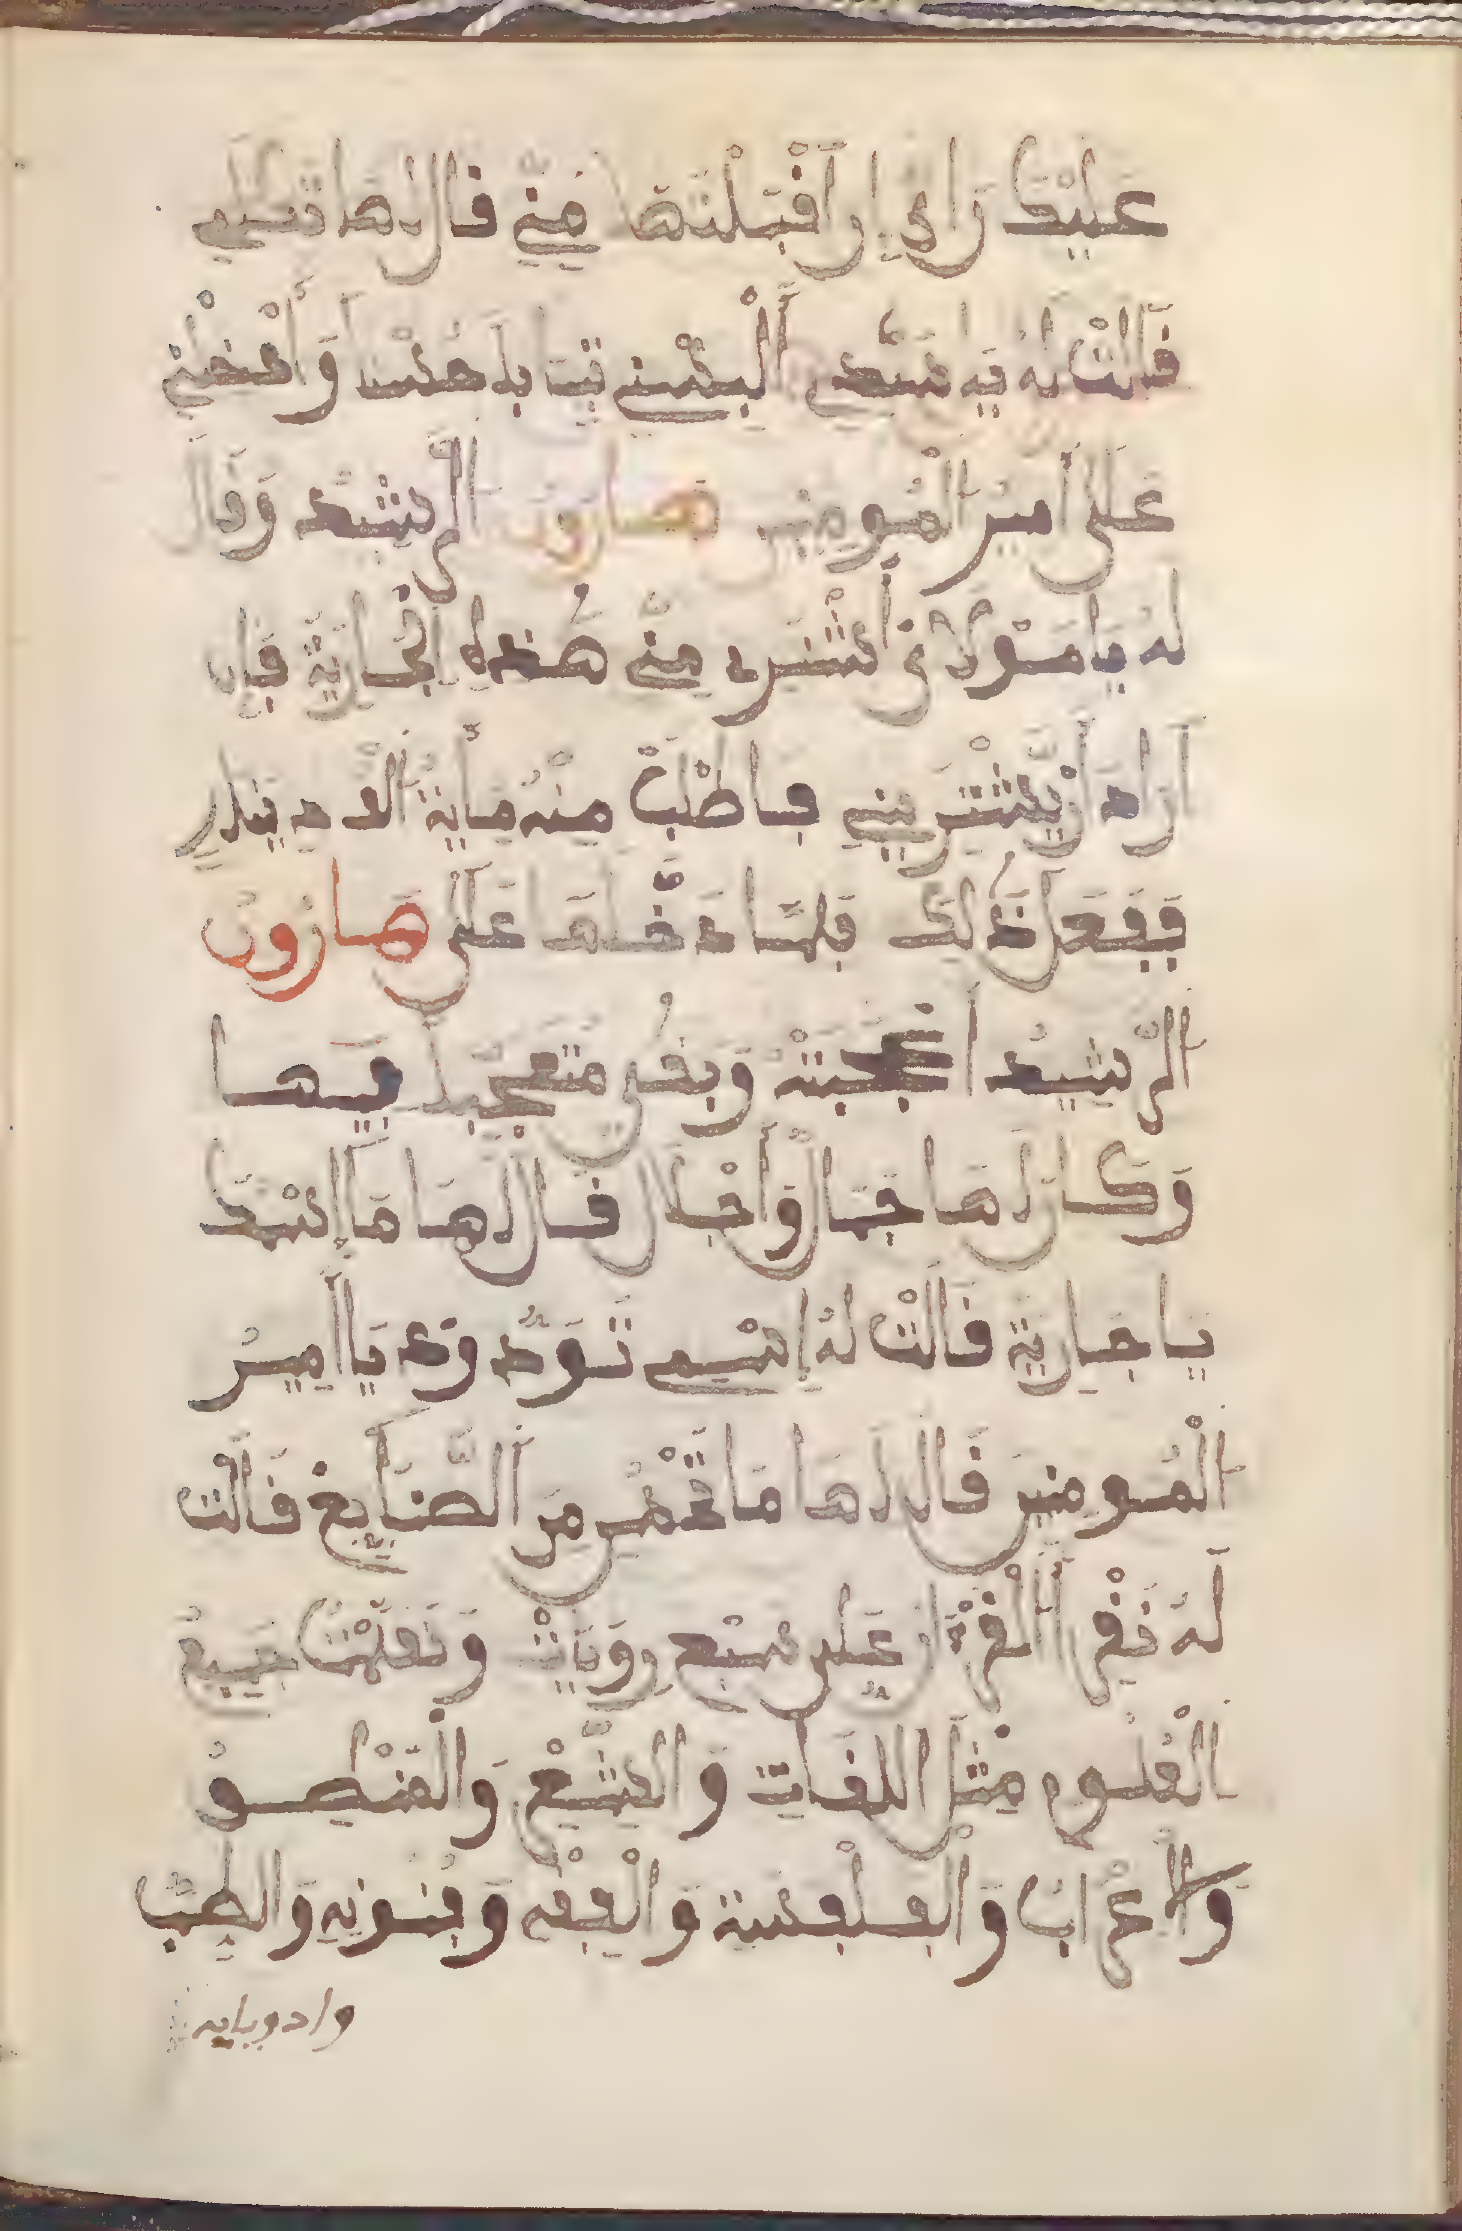 عليك رأي إن اقبلتها مني قال لها تكلمي
قالت له يه سيدي ألبسني ثياب حسنا وأدخلني
على أمير المومنين هارون الرشيد وقال
له يا مولاي أشتري مني هذه الجارية فإن
اراد أن يشتر مني فاطلب منه ماية ألف دينار
ففعل ذلك فلما دخلها على هارون
الرشيد أعجبته وبقي متعجبا فيها
وكان لها جمال وأجلال قال لها ما إسمك
يا جارية قالت له إسمي تودود يا أمير
المومنين قال لها ما تحسن من الصنايع قالت
له نقرأ القرءان على سبع رويات وتعلمت جميع
العلوم مثل اللغات والشعر والمنطو
والاعراب والفلفسة والفقه وفنونه والطب
وادوبايه